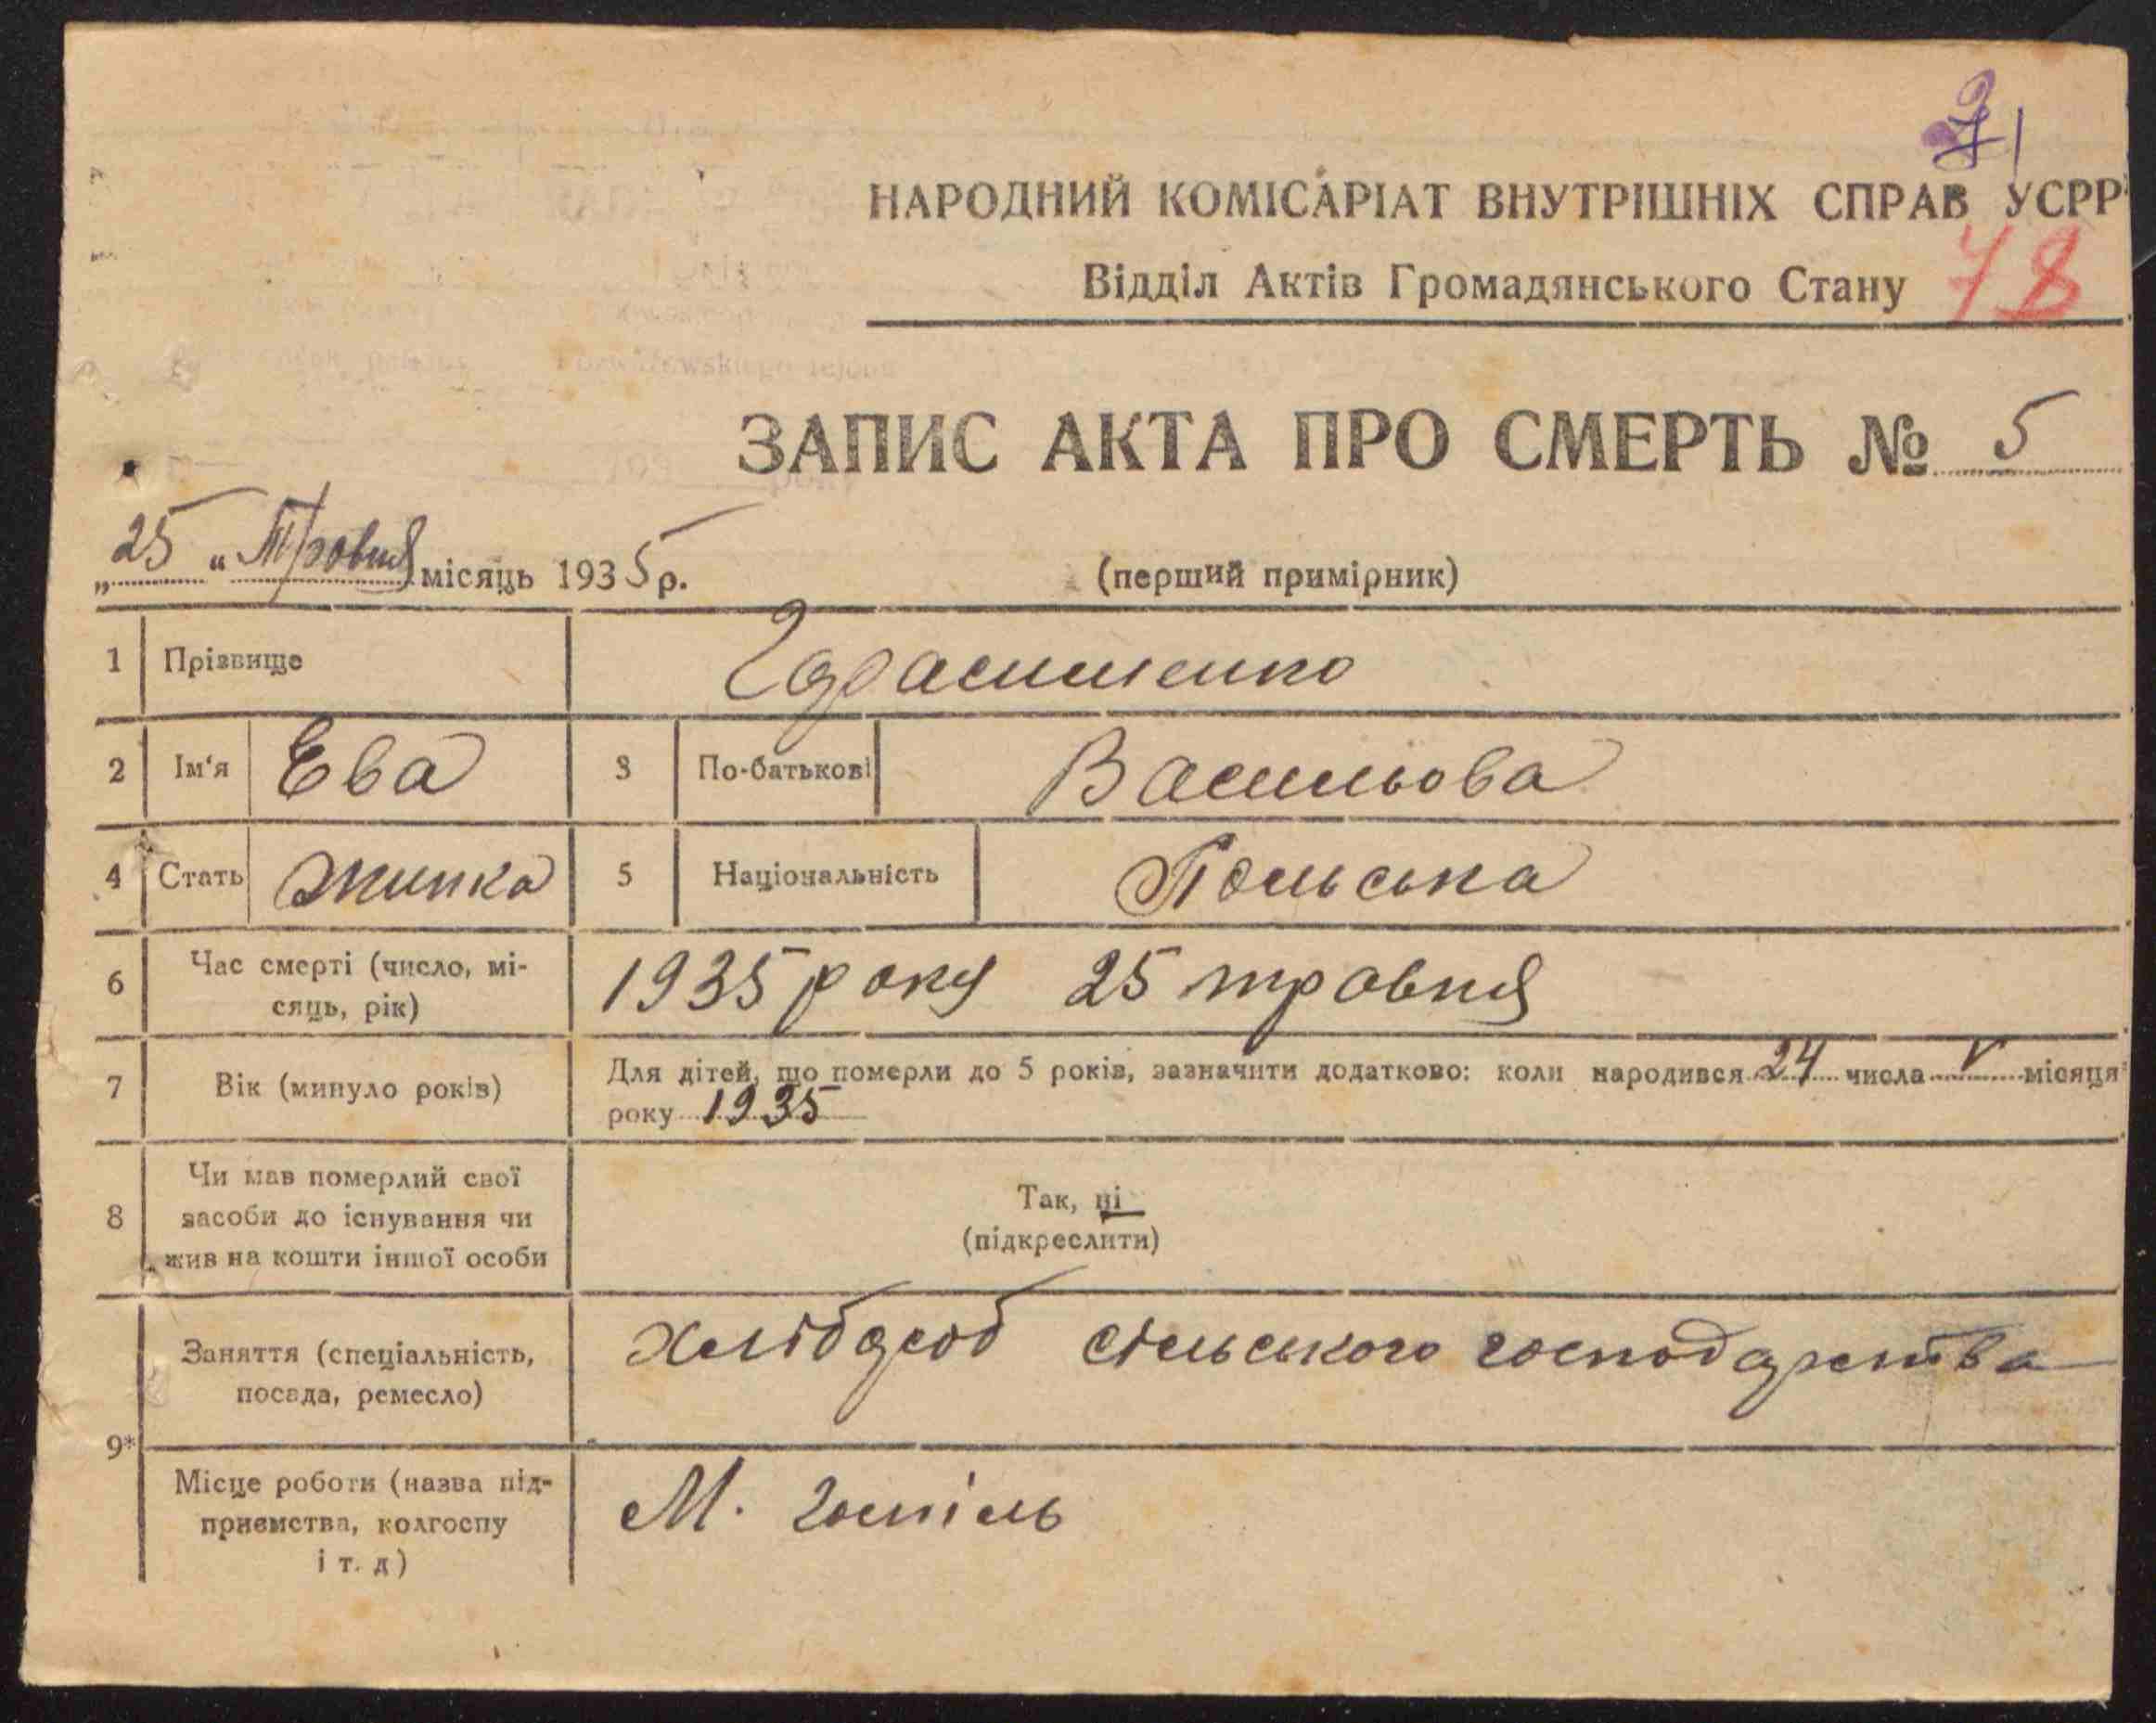 НАРОДНИЙ КОМІСАРІАТ ВНУТРІШНІХ СПРАВ УСРР
Відділ Актів Громадянського Стану 78
ЗАПИС АКТА ПРО СМЕРТЬ № 5
„25“ Травня місяць 1935 р. (перший примірник)
1 Прізвище Гарасименко
2 Ім'я Ева 3 По-батькові Васильова
4 Стать жинка 5 Національність Польська
6 Час смерті (число, мі-
сяць, рік) 1935 року 25 травня
7 Вік (минуло років) Для дітей, що померли до 5 років, зазначити додатково: коли народився 24 числа V місяця
року 1935
8 Чи мав померлий свої
засоби до існування чи
жив на кошти іншої особи
Так, ні
(підкреслити)
9* Заняття (спеціальність,
посада, ремесло) Хлібороб сільського господарства
Місце роботи (назва під-
приємства, колгоспу
і т. д) М.